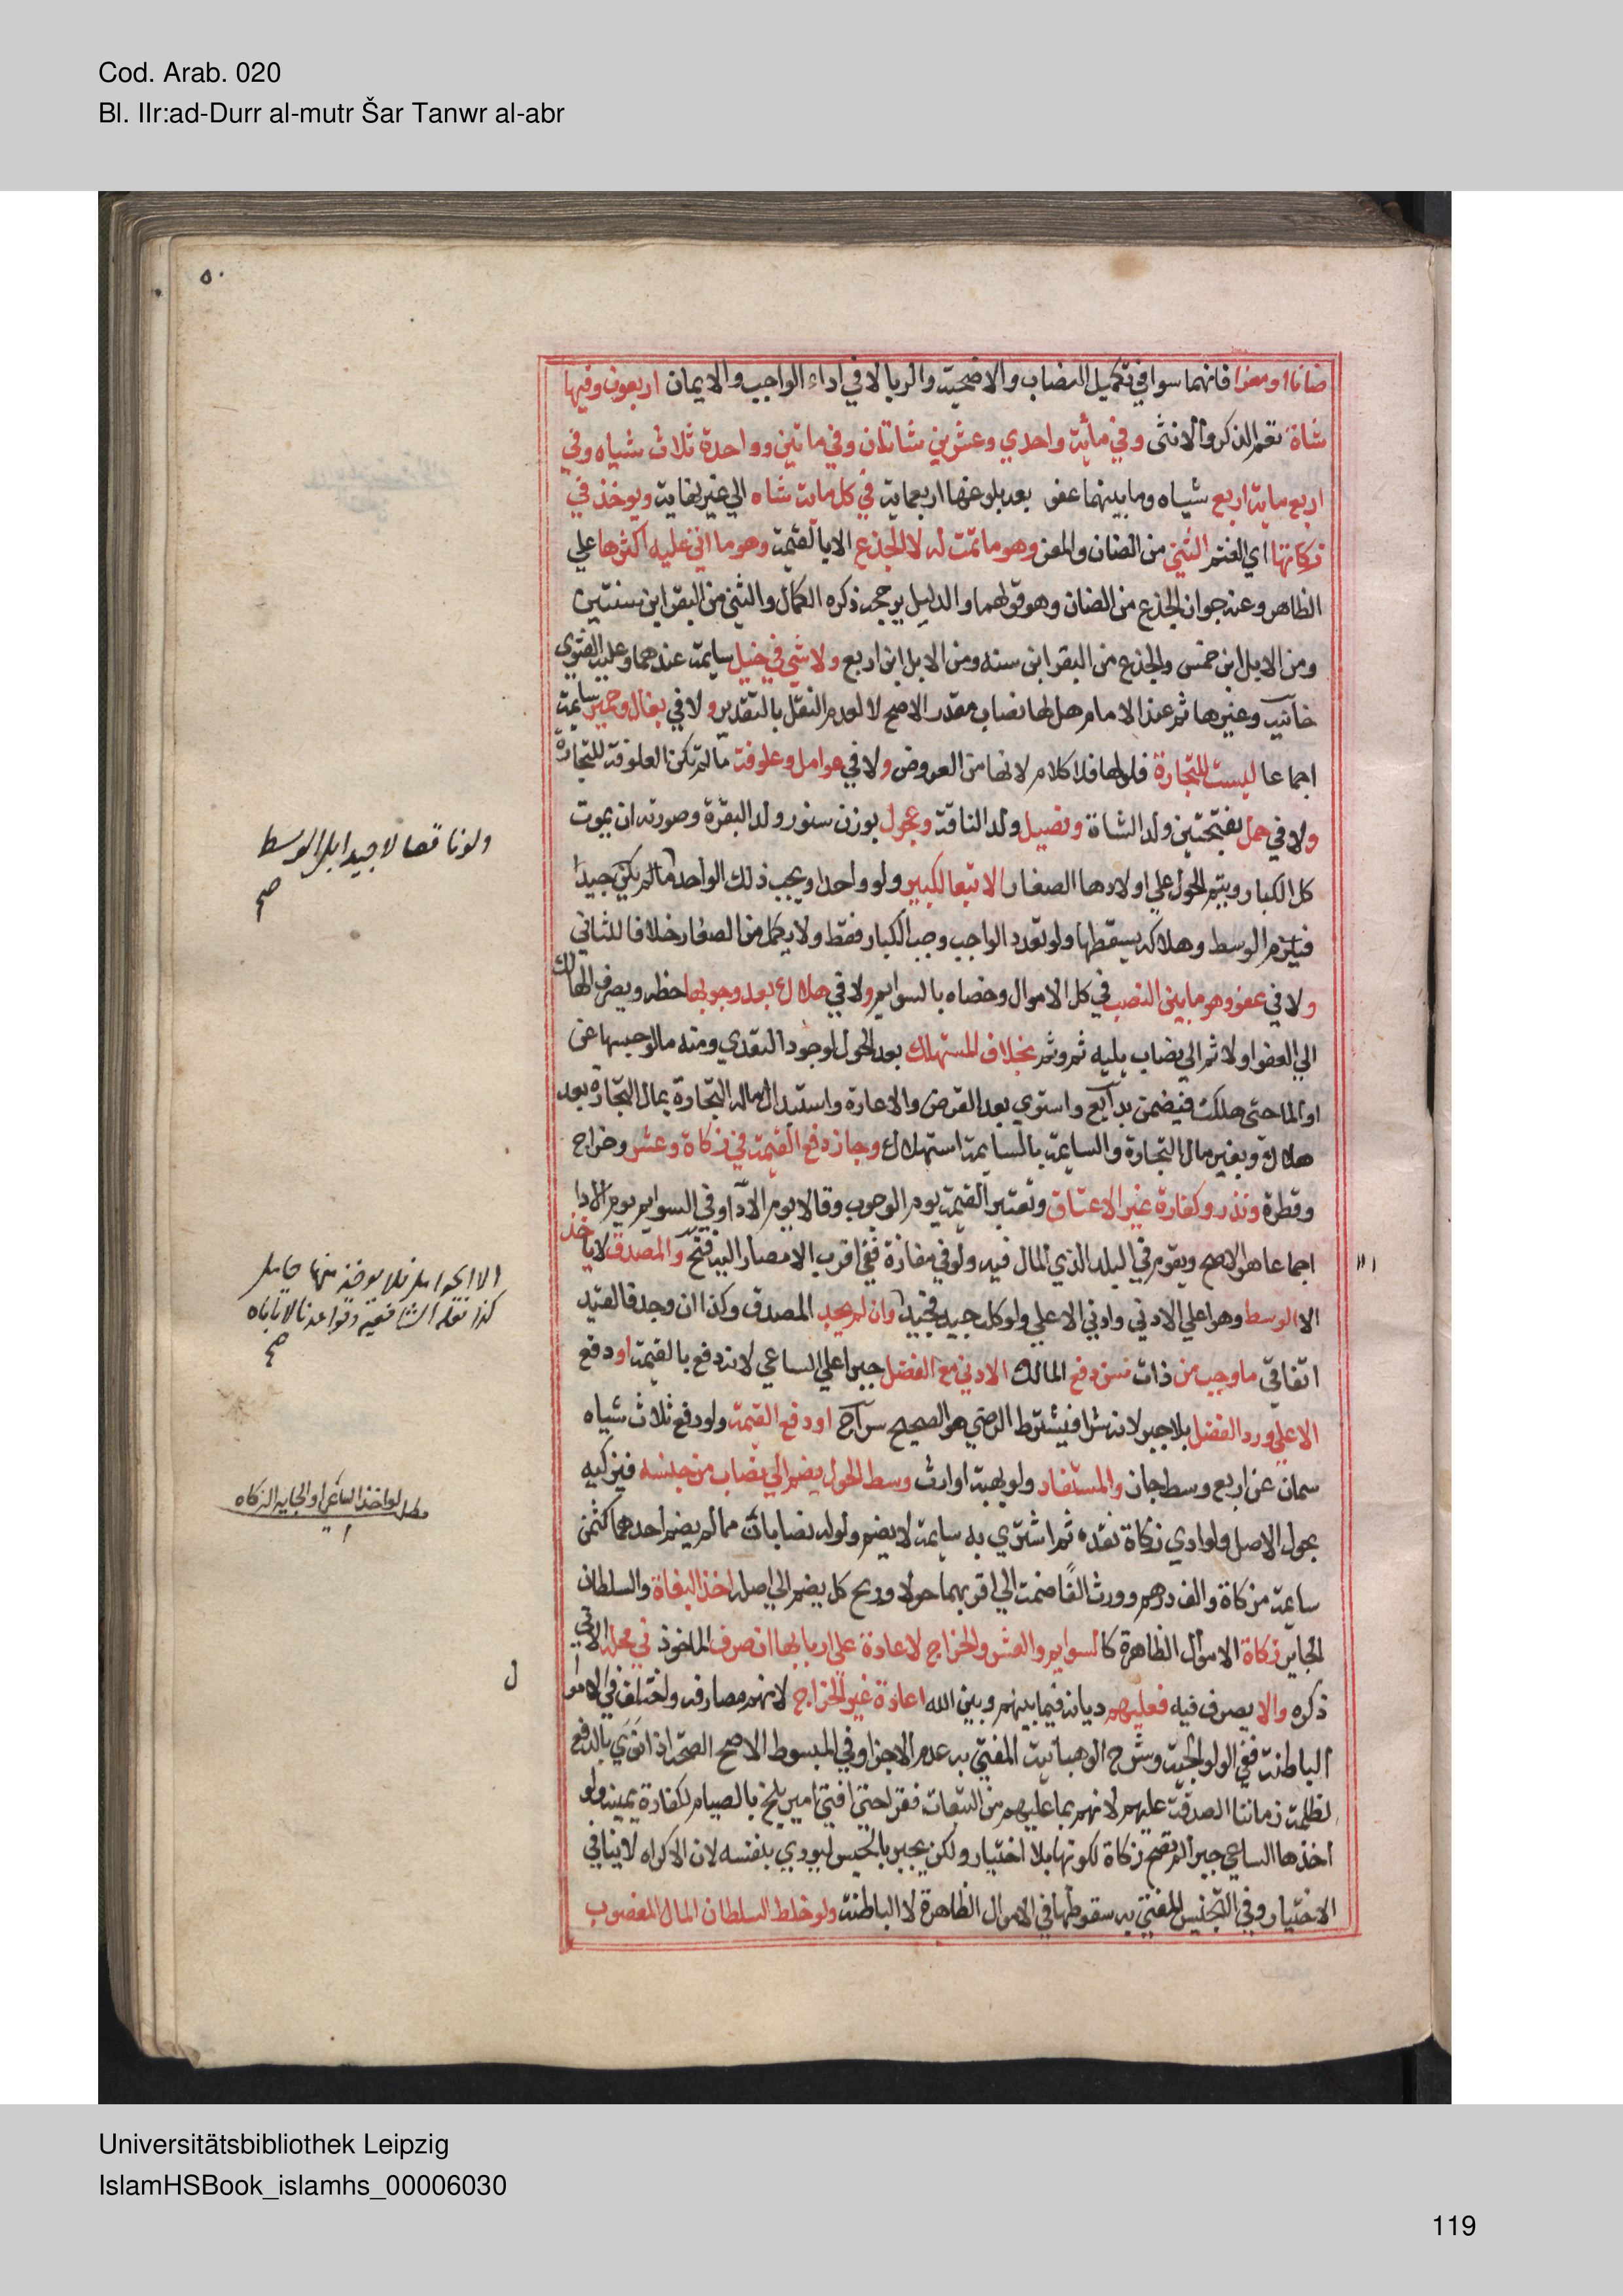 Cod. Arab. 020
Bl. IIr:ad-Durr al-mutr Šar Tanwr al-abr
٥٠
ضانا او معزا فانهما سوا في تكميل النصاب والاضحية والربا لا في اداء الواجب والايمان اربعون وفيها
شاة تعم الذكر والانثى وفي مائة واحدي وعشرين شاتان وفي ماتين وواحدة ثلاث شياه وفي
اربع ماية اربع شياه وما بينهما عفو بعد بلوغها اربعماية في كل ماية شاه الي غير نهاية ويوخذ في
زكاتها اي الغنم الثني من الضان والمعز وهو ما تمت له لا الجذع الا بالقيمة وهو ما اتي عليه اكثرها علي
الظاهر وعنه جواز الجذع من الضان وهو قولهما والدليل يرجحه ذكره الكمال والثني من البقر ابن سنتين
ومن الابل ابن خمس والجذع من البقر ابن سنه ومن الابل ابن اربع ولا شي في خيل سايمة عندهما وعليه الفتوي
خانية وغيرها ثم عند الامام هل لها نصاب مقدر الاصح لا لعدم النقل بالتقدير ولا في بغال وحمير سايمة
اجماعا ليست للتجارة فلو لها فلا كلام لانها من العروض ولا في عوامل وعلوفة ما لم تكن العلوفة للتجارة
ولا في حمل بفتحتين ولد الشاة وفصيل ولد الناقة وعجول بوزن سنور ولد البقرة وصورته ان يموت
كل الكبار ويتم الحول علي اولادها الصغار الا تبعا لكبير ولو واحدا ويجب ذلك الواحد ما لم يكن جيدا
فيلزم الوسط وهلاكه يسقطها ولو تعدد الواجب وجب الكبار فقط ولا يكمل من الصغار خلافا للثاني
ولا في عفو وهو ما بين النصب في كل الاموال وخصاه بالسوايم ولا في هلاك بعد وجوبها خطر ويصرف الهالك
الي العفو اولا ثم الي نصاب يليه ثم وثم بخلاف المستهلك بعد الحول لوجود التعدي ومنه ما لو حبسها عن
او الما حتي هلكت فيضمن بدايع واستوي بعد القرض والاعارة واستبدال مال التجارة بمال التجارة بعد
هلاك وبغير مال التجارة والسايمة بالسايمة استهلاك وجاز دفع القيمة في زكاة وعشر وخراج
وفطرة ونذر وكفارة غير الاعتاق وتعتبر القيمة يوم الوجوب وقالا يوم الادا وفي السوايم يوم الادا
اجماعا هو الاصح ويقوم في البلد الذي المال فيه ولو في مفازة ففي اقرب الامصار اليه فتح والمصدق لا ياخذ
الا الوسط وهو اعلي الادني وادني الاعلي ولو كله جيد فجيد وان لم يجد المصدق وكذا ان وجد فالقيد
اتفاقي ما وجب من ذات سن دفع المالك الادني مع الفضل جبرا علي الساعي لانه دفع بالقيمة او دفع
الاعلي ورد الفضل بلا جبر لانه شرا فيشترط الرضي هو الصحيح سراج او دفع القيمة ولو دفع ثلاث شياه
سمان عن اربع وسط جاز والمستفاد ولو بهبة او ارث وسط الحول يضم الي نصاب من جنسه فيزكيه
بحول الاصل ولو ادي زكاة نقده ثم اشتري به سايمة لا يضم ولو له نصابان مما لم يضم احدهما كثمن
سايمة مزكاة والف درهم وورث الفا ضمت الي اقربهما حولا وربح كل يضم الي اصله اخذ البغاة والسلطان
الجاير زكاة الاموال الظاهرة كالسوايم والعشر والخراج لا عادة علي اربابها ان صرف الماخوذ في محله الاتي
ذكره والا يصرف فيه فعليهم ديانة فيما بينهم وبين الله اعادة غير الخراج لانهم مصارفه واختلف في الاموا
الباطنة ففي الولوالجية وشرح الوهبانية المفتي به عدم الاجزا وفي المبسوط الاصح الصحة اذا نوي بالدفع
لظلمة زماننا الصدقة عليهم لانهم بما عليهم من التبعات فقرا حتي افتي امير بلخ بالصيام لكفارة يمينه ولو
اخذها الساعي جبرا لم تصح زكاة لكونها بلا اختيار ولكن يجبر بالحبس ليودي بنفسه لان الاكراه لا ينافي
الاختيار وفي التجنيس المفتي به سقوطها في الاموال الظاهرة لا الباطنة ولو خلط السلطان المال المغصوب
ولو ناقصا لا جيدا بل الوسط
صح
الا الحوامل فلا يوخذ منها حامل
كذا نقله الشافعية وقواعدنا لا تاباه
صح
مطل لو اخذ الساعي او الجاير الزكاه
Universitätsbibliothek Leipzig
IslamHSBook_islamhs_00006030
119